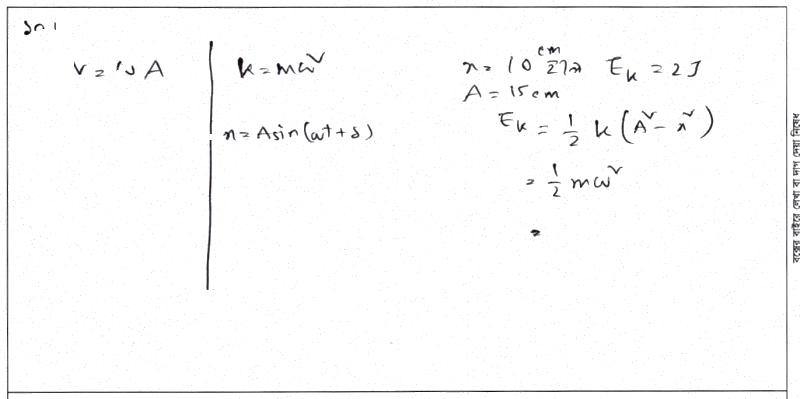 ১০।
v = ω A
k = mω²
x = A sin(ωt + δ)
x = 10 cm হলে E_k = 2J
A = 15 cm
E_k = 1/2 k (A² - x²)
= 1/2 mω²
=
বক্সের বাইরে লেখা বা দাগ দেয়া নিষেধ